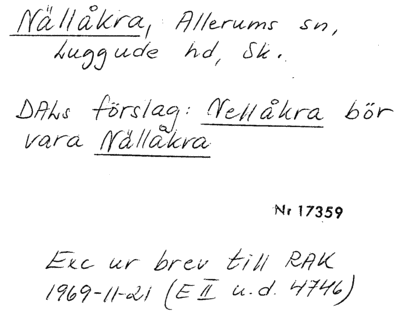 Nällåkra, Allerums sn,
Luggude hd, Sk.
DALs förslag: Nellåkra bör
vara Nällåkra
Nr 17359
Exc ur brev till RAK
1969-11-21 (E II u.d. 4746)